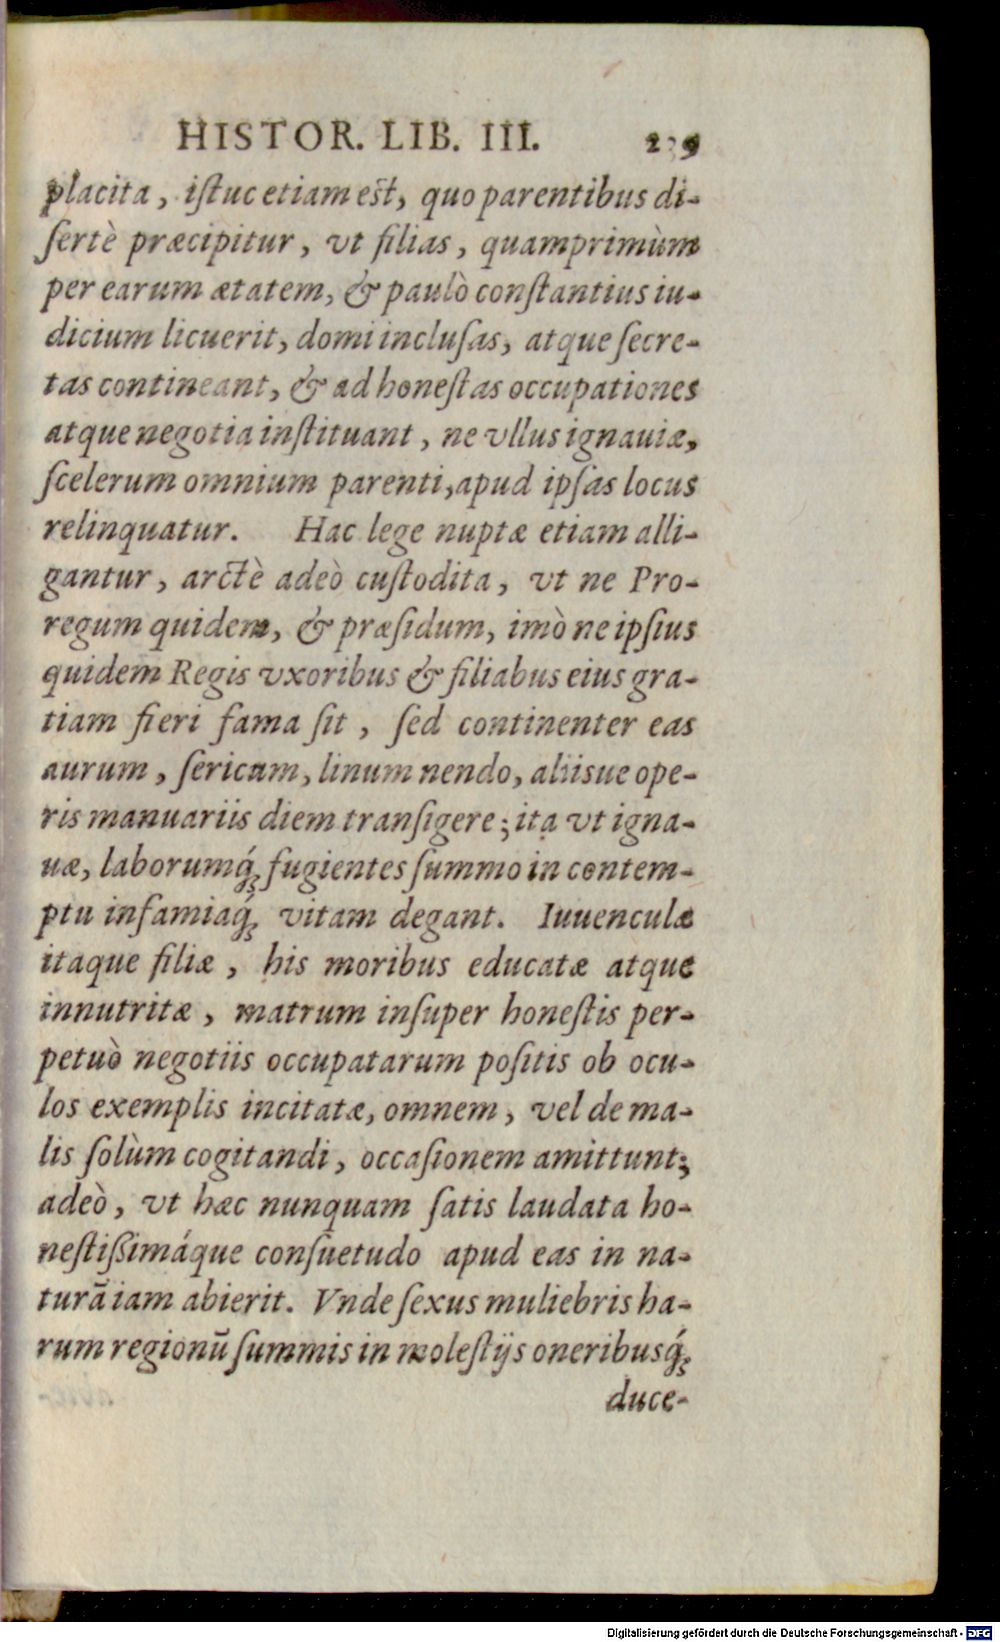 HISTOR. LIB. III. 239
placita, iſtuc etiam est, quo parentibus di-
ſertè præcipitur, vt filias, quamprimùm
per earum ætatem, & paulò conſtantius iu-
dicium licuerit, domi incluſas, atque ſecre-
tas contineant, & ad honeſtas occupationes
atque negotia inſtituant, ne vllus ignauiæ,
ſcelerum omnium parenti, apud ipſas locus
relinquatur. Hac lege nuptæ etiam alli-
gantur, arctè adeò cuſtodita, vt ne Pro-
regum quidem, & præſidum, imò ne ipſius
quidem Regis vxoribus & filiabus eius gra-
tiam fieri fama ſit, ſed continenter eas
aurum, ſericum, linum nendo, aliisue ope-
ris manuariis diem tranſigere; ita vt igna-
uæ, laborumq́; fugientes ſummo in contem-
ptu infamiaq́; vitam degant. Iuuenculæ
itaque filiæ, his moribus educatæ atque
innutritæ, matrum inſuper honeſtis per-
petuò negotiis occupatarum poſitis ob ocu-
los exemplis incitatæ, omnem, vel de ma-
lis ſolùm cogitandi, occaſionem amittunt;
adeò, vt hæc nunquam ſatis laudata ho-
neſtißimáque conſuetudo apud eas in na-
turā iam abierit. Vnde ſexus muliebris ha-
rum regionū ſummis in moleſtijs oneribusq́;
duce-
Digitalisierung gefördert durch die Deutsche Forschungsgemeinschaft - DFG